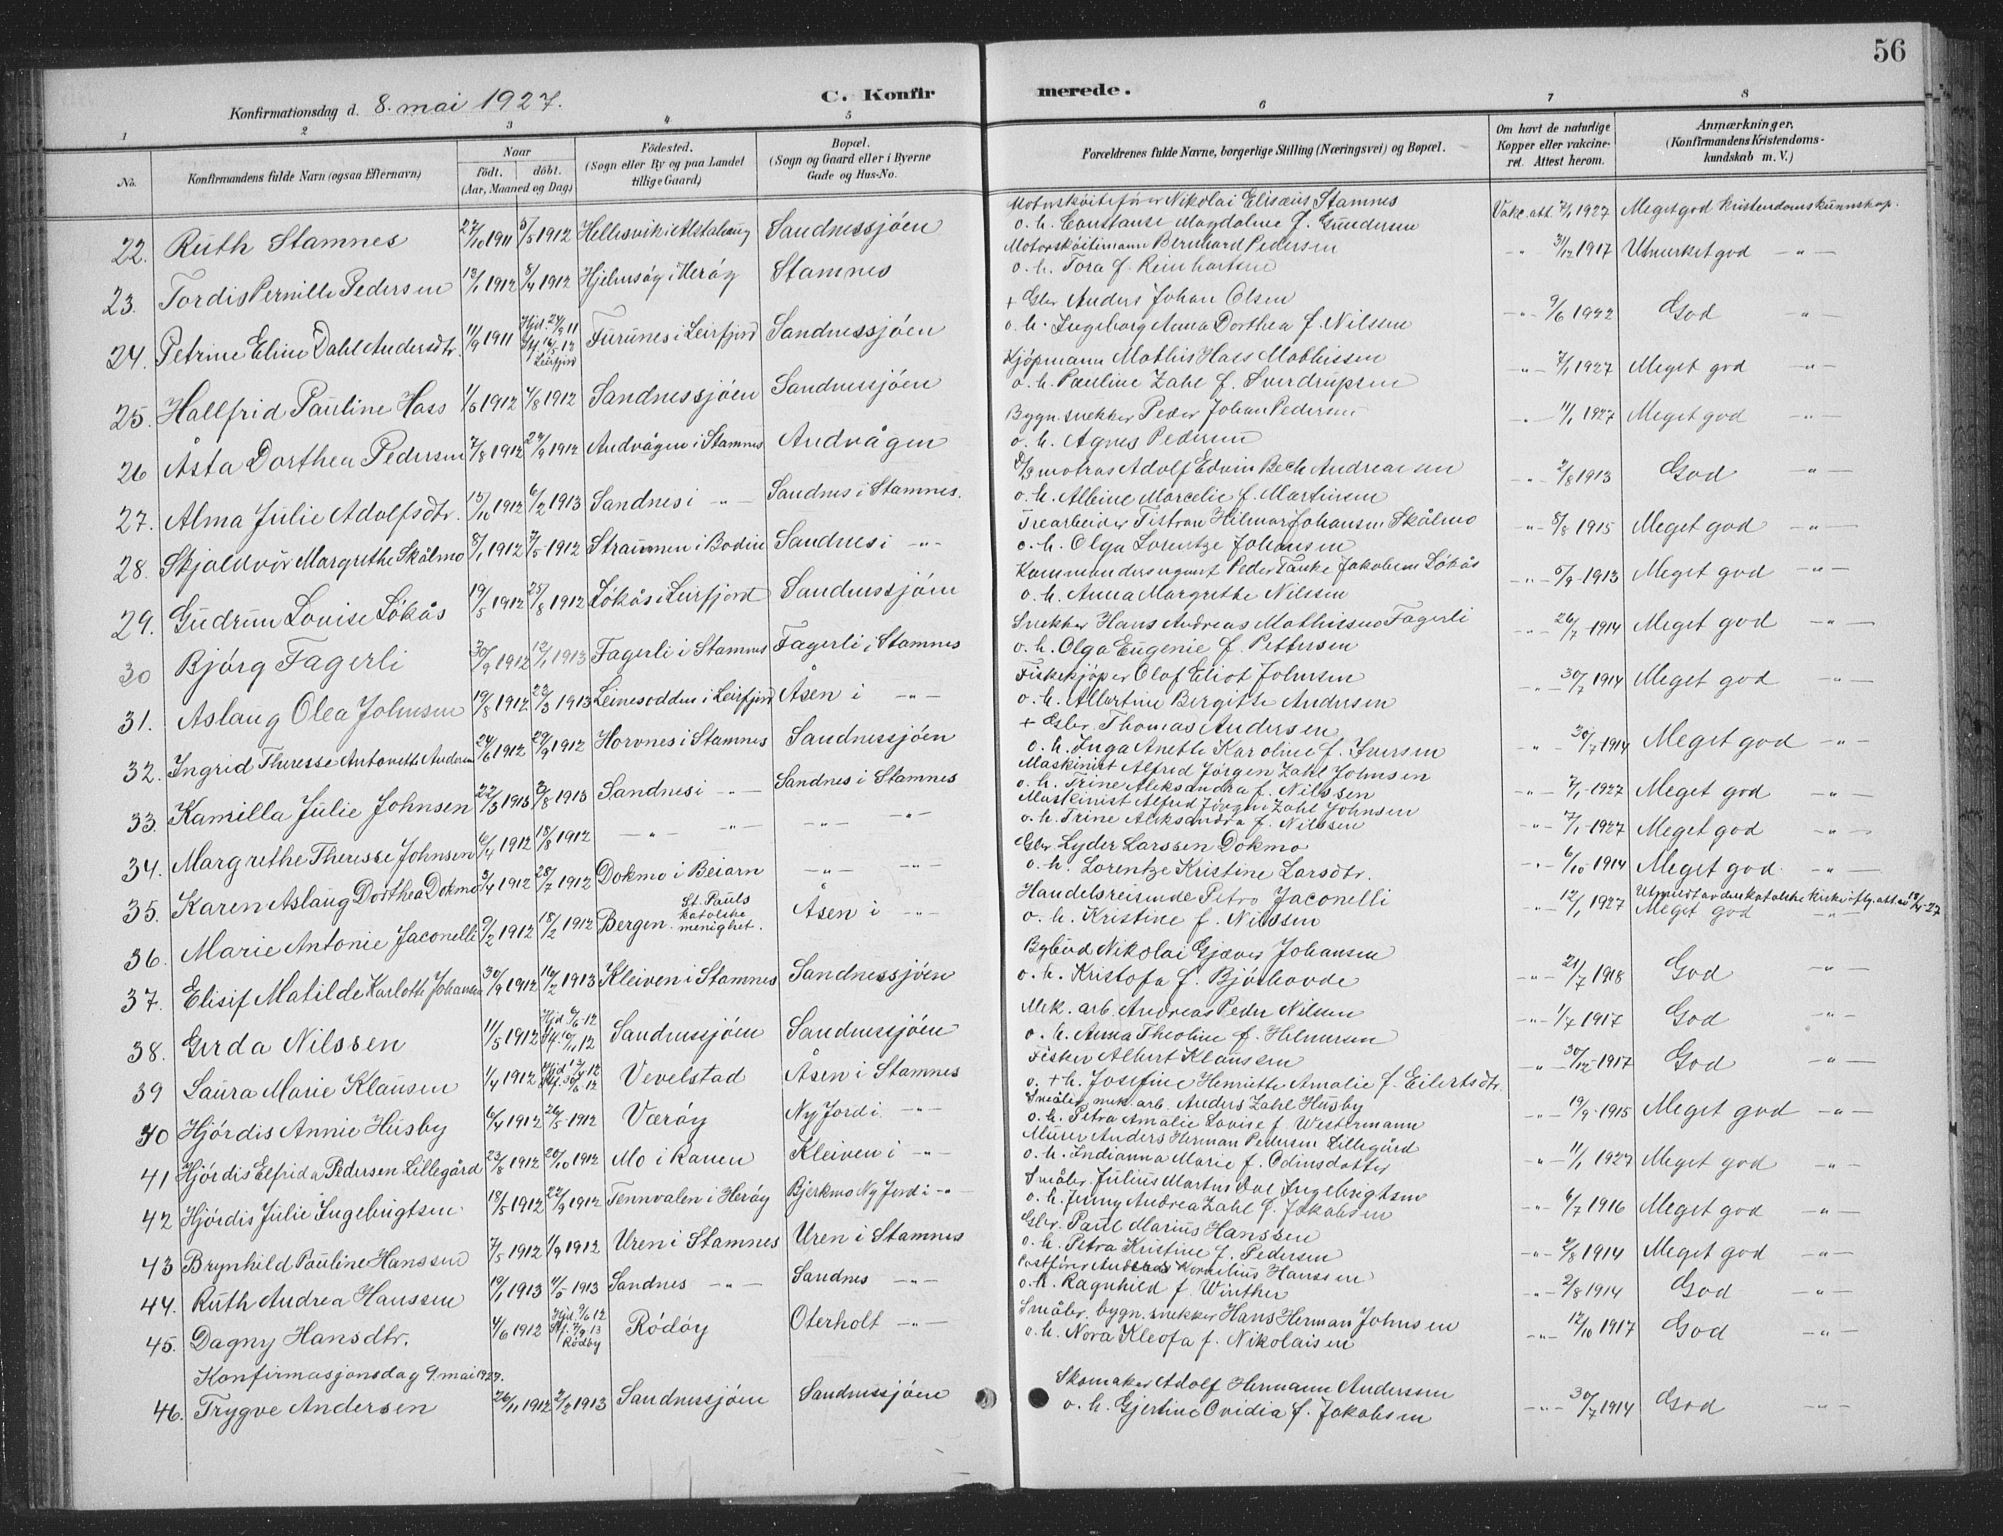 56
Konfirmationsdag d. 8. mai 1927.
C. Konfirmerede.
1 2 3 4 5 6 7 8
No. Konfirmandens fulde Navn (ogsaa Efternavn) Naar født. døbt. (Aar, Maaned og Dag) Fødested. (Sogn eller By og paa Landet tillige Gaard) Bopæl. (Sogn og Gaard eller i Byerne Gade og Hus-No. Forældrenes fulde Navne, borgerlige Stilling (Næringsvei) og Bopæl. Om havt de naturlige Kopper eller vakcineret. Attest herom. Anmærkninger. (Konfirmandens Kristendomskundskab m. V.)
22. Ruth Stamnes 27/10 1911 5/5 1912 Hellesvik i Alstahaug Sandnessjøen Motorskøitefører Nikolai Elisæus Stamnes o. h. Constanse Magdaline f. Gundersen Vakc. att. 7/1 1927 Meget god kristendomskunnskap.
23. Tordis Pernille Pedersen 13/1 1912 8/4 1912 Hjelmsøy i Herøy Stamnes Motorskøitemann Bernhard Pedersen o. h. Tora f. Reinhartsen -"- 31/12 1917 Utmerket god -"-
24. Petrine Eline Dahl Andersdtr. 11/9 1911 Hjd. 24/9 11 Stf. 16/5 12 Leirfjord Furunes i Leirfjord Sandnessjøen + Gbr Anders Johan Olsen o. h. Ingeborg Anna Dorthea f. Nilssen -"- 9/6 1922 God -"-
25. Hallfrid Pauline Hass 1/5 1912 4/8 1912 Sandnessjøen Sandnessjøen Kjøpmann Mathis Hass Mathissen o. h. Pauline Zahl f. Sverdrupsen -"- 7/1 1927 Meget god -"-
26 Åsta Dorthea Pedersen 7/8 1912 29/9 1912 Andvågen i Stamnes Andvågen Bygn. snekker Peder Johan Pedersen o. h. Agnes Pedersen -"- 11/1 1927 Meget god -"-
27. Alma Julie Adolfsdtr. 13/10 1912 6/2 1913 Sandnes i -"- Sandnes i Stamnes. D/S motros Adolf Edvin Bech Andreassen o. h. Albine Marcelie f. Martinsen -"- 2/8 1913 God -"-
28. Skjaldvør Margrethe Skålmo 8/1 1912 2/5 1912 Straumen i Bodin Sandnes i -"- Trearbeider Tistran Hilmar Johansen Skålmo o. h. Olga Lorentze Johansen -"- 8/8 1915 Meget god -"-
29. Gudrun Lovise Løkås 19/5 1912 25/8 1912 Løkås i Leirfjord Sandnessjøen Kommandersergeant Peder Tanke Jakobsen Løkås o. h. Anna Margrethe Nilssen -"- 5/9 1913 Meget god -"-
30 Bjørg Fagerli 30/9 1912 12/1 1913 Fagerli i Stamnes Fagerli i Stamnes Snekker Hans Andreas Mathissen Fagerli o. h. Olga Eugenie f. Pettersen -"- 26/7 1914 Meget god -"-
31. Aslaug Olea Johnsen 19/8 1912 23/3 1913 Leinesodden i Leirfjord Åsen i -"- Fiskekjøper Olaf Eliot Johnsen o. h. Albertine Bergitte Andersen -"- 30/7 1914 Meget god -"-
32. Ingrid Theresse Antonette Andersen 24/6 1912 29/9 1912 Horvnes i Stamnes Sandnessjøen + Gbr. Thomas Andersen o. h. Inga Anette Karoline f. Iversen -"- 30/7 1914 Meget god -"-
33. Kamilla Julie Johnsen 22/3 1913 3/8 1913 Sandnes i -"- Sandnes i Stamnes Maskinist Alfred Jørgen Zahl Johnsen o. h. Trine Aleksandra f. Nilssen -"- 7/1 1927 Meget god -"-
34. Margrethe Theresse Johnsen 6/4 1912 18/8 1912 -"- -"- -"- -"- Maskinist Alfred Jørgen Zahl Johnsen o. h. Trine Aleksandra f. Nilssen -"- 7/1 1927 Meget god -"-
35. Karen Aslaug Dorthea Dokmo 3/4 1912 28/7 1912 Dokmo i Beiarn -"- -"- Gbr Lyder Larssen Dokmo o. h. Lorentze Kristine Larsdtr. -"- 6/10 1914 Meget god. -"-
36. Marie Antonie Jaconelli 9/2 1912 18/2 1912 Bergen. St. Pauls katolske menighet. Åsen i -"- Handelsreisende Petro Jaconelli o. h. Kristine f. Nilssen -"- 12/1 1927 Utmeldt av den katolske kirke iflg. att. av 18/4-27 Meget god -"-
37. Elisif Matilde Karlotte Johansen 30/9 1912 16/2 1913 Kleiven i Stamnes Sandnessjøen Bybud Nikolai Gjæver Johansen o. h. Kristofa f. Bjørhovde -"- 21/7 1918 God -"-
38. Gerda Nilssen 11/5 1912 Hjd 6/6 12 Stf. 10/11 12 Sandnessjøen Sandnessjøen Mek. arb. Andreas Peder Nilsen o. h. Anna Theoline f. Helmersen -"- 1/7 1917 God -"-
39 Laura Marie Klausen 1/4 1912 Hjd 17/4 12 Stf. 30/6 12 Vevelstad Åsen i Stamnes Fisker Albert Klausen o. + h. Josefine Henriette Amalie f. Eilertsdtr. -"- 30/12 1917 God -"-
40 Hjørdis Annie Husby 6/4 1912 26/5 1912 Værøy Ny Jord i -"- Småbr, mek. arb. Anders Zahl Husby o. h. Petra Amalie Lovise f. Westermann -"- 19/9 1915 Meget god -"-
41 Hjørdis Elfrida Pedersen Lillegård 23/8 1912 20/10 1912 Mo i Ranen Kleiven i -"- Murer Anders Herman Pedersen Lillegård o. h. Indianna Marie f. Odinsdatter -"- 11/1 1927 Meget god -"-
42 Hjørdis Julie Ingebrigtsen 18/5 1912 22/9 1912 Tennvalen i Herøy Bjerkmo Ny Jord i -"- Småbr. Julius Martin Dal Ingebrigtsen o. h. Jenny Andrea Zahl f. Jakobsen -"- 6/7 1916 Meget god -"-
43 Brynhild Pauline Hanssen 7/5 1912 1/9 1912 Uren i Stamnes Uren i Stamnes Gbr. Paul Marius Hanssen o. h. Petra Kristine f. Pedersen -"- 2/8 1914 Meget god -"-
44. Ruth Andrea Hanssen 19/1 1913 4/5 1913 Sandnes -"- Sandnes -"- Postfører Kornelius Hanssen o. h. Ragnhild f. Winther -"- 2/8 1914 God -"-
45. Dagny Hansdtr. 4/6 1912 Hjd. 9/6 12 Stf. 7/9 13 Rødøy Rödöy Oterholt -"- Småbr. bygn. snekker Hans Herman Johnsen o. h. Nora Kleofa f. Nikolaisen -"- 12/10 1917 God -"-
Konfirmasjonsdag 9. mai 1927.
46. Trygve Andersen 26/11 1912 2/2 1913 Sandnessjøen Sandnessjøen Skomaker Adolf Hermann Anderssen o. h. Gjertine Ovidia f. Jakobsen -"- 30/7 1914 God -"-